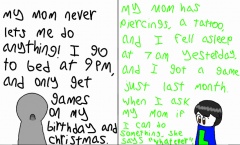 my mom never
lets me do
anything! I go
to bed at 9PM,
and only get
games
on my
birthday and
christmas.
my mom has
piercings, a tattoo
and I fell asleep
at 7am yesterday
and I got a game
just last month.
when I ask
my mom if
I can do
something, she
says "whatever"